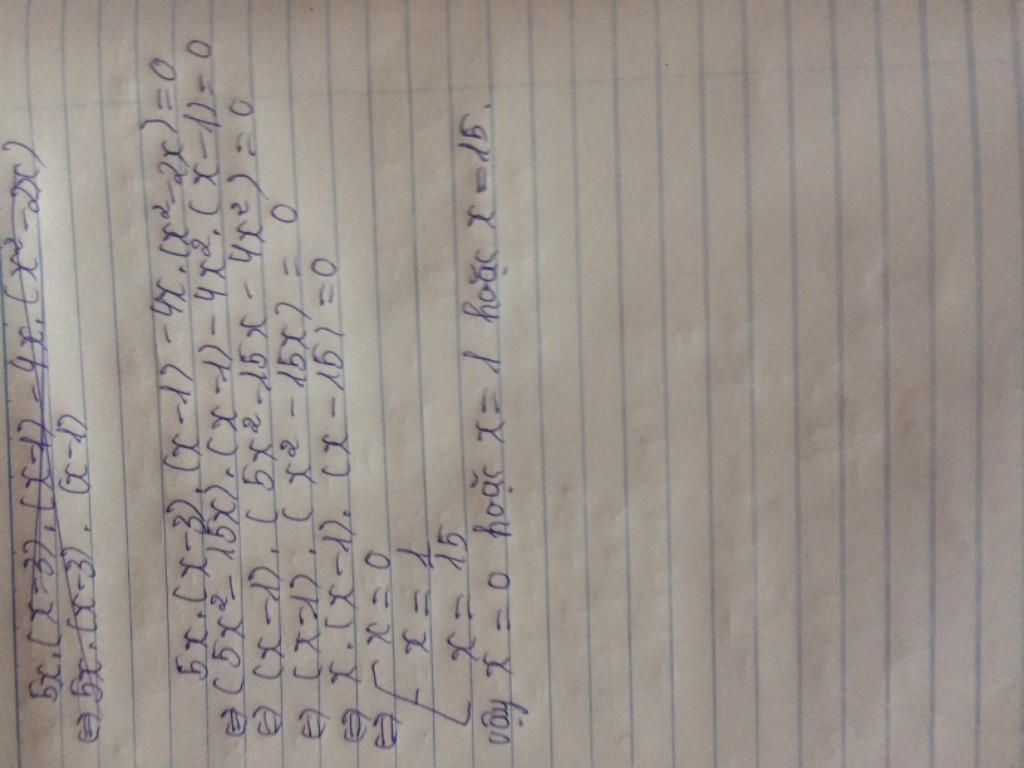 5x.(x-3).(x-1)-4x.(x²-2x)
⇔ 5x.(x-3).(x-1)
5x.(x-3)(x-1)-4x.(x²-2x)=0
⇔ (5x²-15x).(x-1)-4x².(x-1)=0
⇔ (x-1).(5x²-15x-4x²)=0
⇔ (x-1).(x²-15x)=0
⇔ x.(x-1).(x-15)=0
⇔ [x=0
x=1
x=15
vậy x=0 hoặc x=1 hoặc x=15.